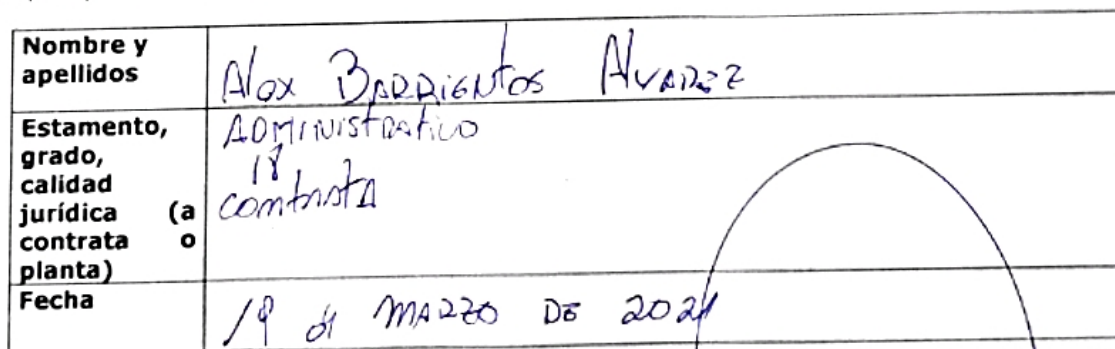 Nombre y
apellidos
Alex BARRIENTOS ALVAREZ
Estamento,
grado,
calidad
jurídica (a
contrata o
planta)
ADMINISTRATIVO
18
contrata
Fecha
19 de MARZO DE 2021